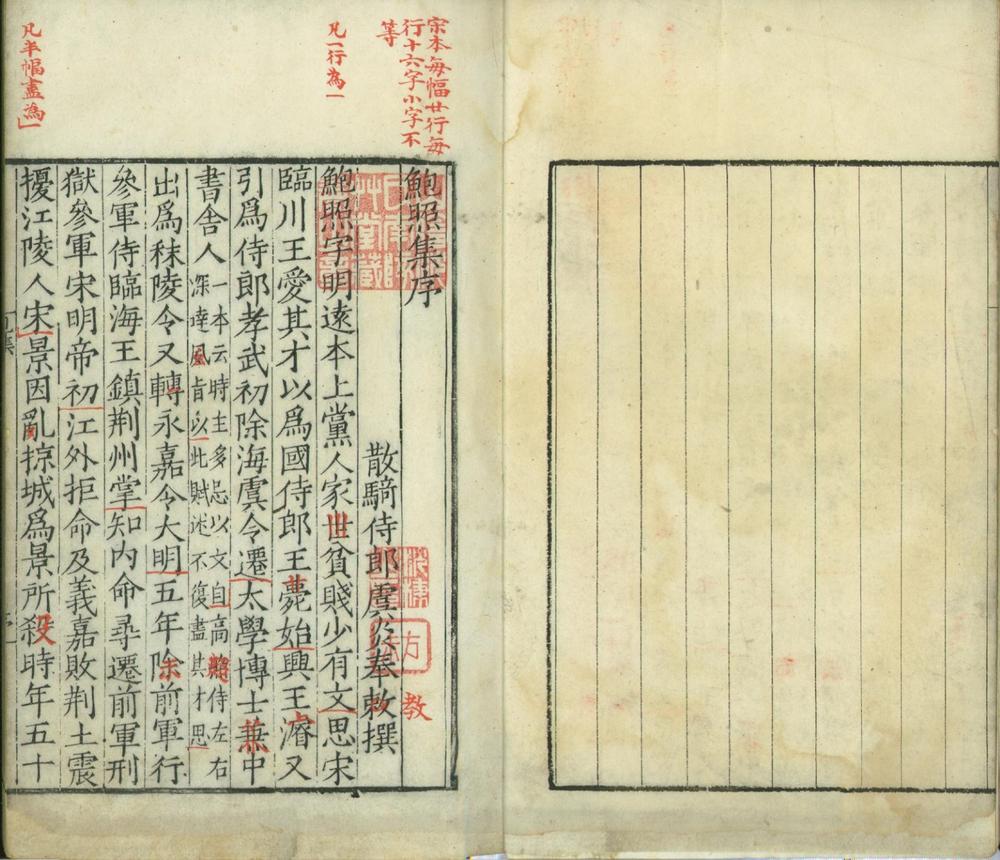 宋本每幅廿行每
行十六字小字不
等
凡一行為一
凡半幅盡為一
鮑照集序
散騎侍郎虞炎奉敕撰
教
鮑照字明遠本上黨人家世貧賤少有文思宋
臨川王愛其才以爲國侍郎王薨始興王濬又
引爲侍郎孝武初除海虞令遷太學博士兼中
書舍人一本云時主多忌以文自高趨侍左右
深達風旨以此賦述不復盡其才思
出爲秣陵令又轉永嘉令大明五年除前軍行
參軍侍臨海王鎮荆州掌知內命尋遷前軍刑
獄參軍宋明帝初江外拒命及義嘉敗荆土震
擾江陵人宋景因亂掠城爲景所殺時年五十